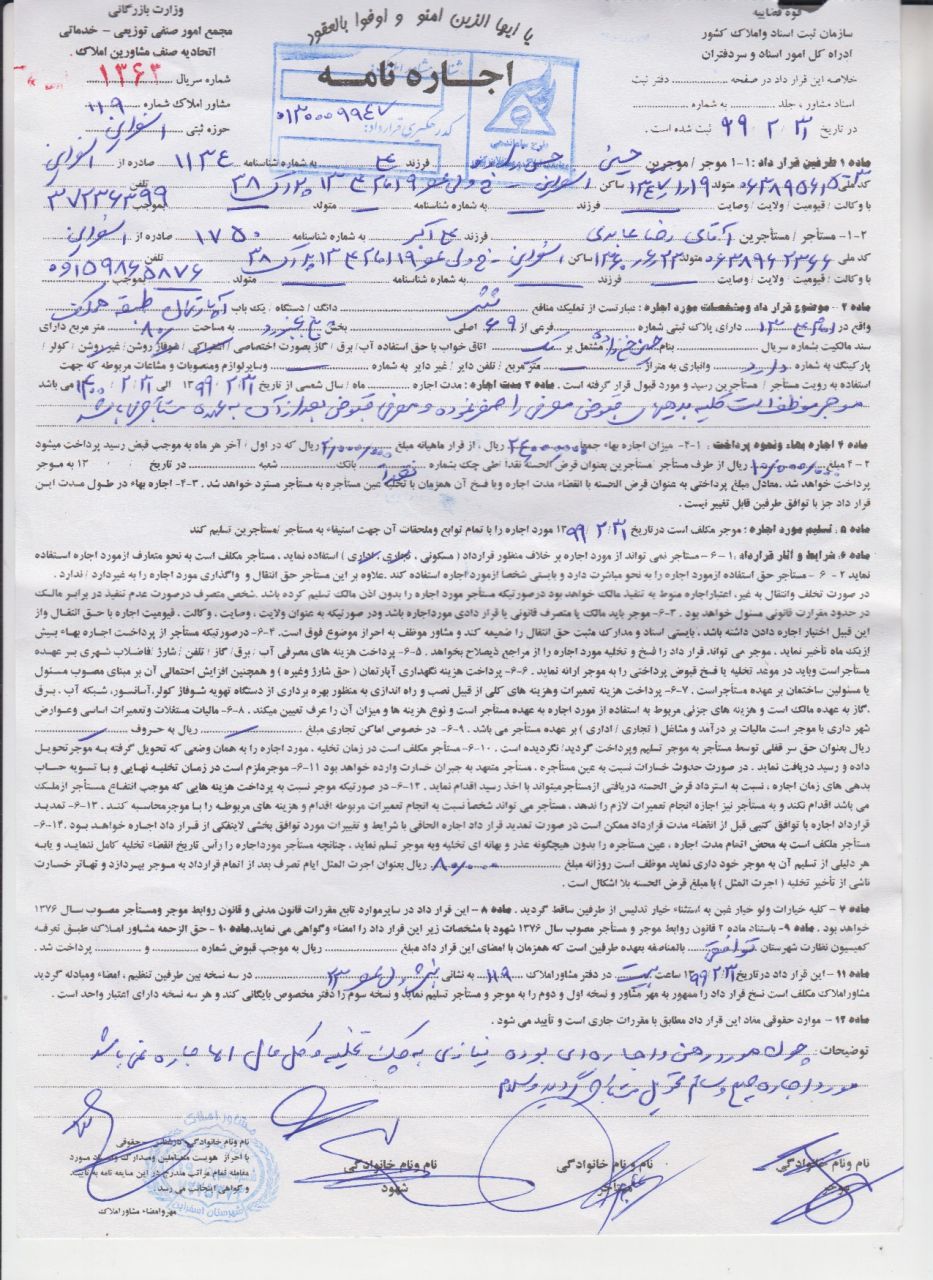 یا ایها الذین امنو و اوفوا بالعقود
قوه قضاییه
سازمان ثبت اسناد واملاک کشور
ادراه کل امور اسناد و سردفتران
خلاصه این قرار داد در صفحه ........ دفتر ثبت
اسناد مشاور ، جلد ........ به شماره ........
در تاریخ ۹۹/۲/۳۱ ثبت شده است .
اجــاره نامــه
کد رهگیری قرارداد:
طرح ساماندهی
وزارت بازرگانی
مجمع امور صنفی توزیعی - خدماتی
اتحادیه صنف مشاورین املاک .
شماره سریال ۱۳۶۳
مشاور املاک شماره ۱۱۹
حوزه ثبتی : اسفراین
ماده ۱ طرفین قرار داد : ۱-۱ موجر / موجرین حسین فرزند به شماره شناسنامه ۱۱۳۴ صادره از اسفراین
کد ملی متولد ساکن اسفراین تلفن ۳۷۲۳۶۳۹۹
با وکالت / قیومیت / ولایت / وصایت فرزند به شماره شناسنامه متولد بموجب
۱-۲ - مستأجر / مستأجرین آقای رضا عابدی فرزند اکبر به شماره شناسنامه ۱۷۵۰ صادره از اسفراین
کد ملی متولد ساکن اسفراین تلفن ۰۹۱۵۹۸۶۵۸۷۶
با وکالت / قیومیت / ولایت / وصایت فرزند به شماره شناسنامه متولد بموجب
ماده ۲ - موضوع قرار داد ومشخصات مورد اجاره : عبارتست از تملیک منافع شش دانگ / دستگاه / یک باب آپارتمان طبقه همکف
واقع در دارای پلاک ثبتی شماره فرعی از ۶۹ اصلی بخش به مساحت ۸۰ متر مربع دارای
سند مالکیت بشماره سریال بنام مشتمل بر یک اتاق خواب با حق استفاده آب/ برق / گاز بصورت اختصاصی / اشتراکی / شوفاژ روشن/ غیر روشن / کولر /
پارکینگ به شماره دارد وانباری به متراژ متر مربع / تلفن دایر / غیر دایر به شماره وسایرلوازم ومنصوبات و مشاعات مربوطه که جهت
استفاده به رویت مستأجر / مستأجرین رسید و مورد قبول قرار گرفته است . ماده ۳ مدت اجاره : مدت اجاره ماه / سال شمسی از تاریخ ۱۳۹۹/۲/۳۱ الی ۱۴۰۰/۲/۳۱ می باشد
موجر موظف است کلیه بدهیهای قبوض مصرفی را صفر نموده و مصرفی قبوض بعد از آن به عهده مستأجر میباشد
ماده ۴ اجاره بهاء ونحوه پرداخت : ۱-۴- میزان اجاره بهاء جمعا ۲۴۰۰۰۰۰۰ ریال ، از قرار ماهیانه مبلغ ۲/۰۰۰/۰۰۰ ریال که در اول / آخر هر ماه به موجب قبض رسید پرداخت میشود
۲-۴ مبلغ ریال از طرف مستأجر / مستأجرین بعنوان قرض الحسنه نقدا /طی چک بشماره نقدا بانک شعبه در تاریخ ۱۳ به موجر
پرداخت خواهد شد .معادل مبلغ پرداختی به عنوان قرض الحسنه با انقضاء مدت اجاره ویا فسخ آن همزمان با تخلیه عین مستأجره به مستأجر مسترد خواهد شد . ۳-۴- اجاره بهاء در طول مدت این
قرار داد جز با توافق طرفین قابل تغییر نیست .
ماده ۵ . تسلیم مورد اجاره : موجر مکلف است درتاریخ ۱۳۹۹/۲/۳۱ مورد اجاره را با تمام توابع وملحقات آن جهت استیفاء به مستأجر /مستأجرین تسلیم کند
ماده ۶. شرایط و آثار قرارداد :۱ -۶ - مستأجر نمی تواند از مورد اجاره بر خلاف منظور قرارداد ( مسکونی ، تجاری ،اداری ) استفاده نماید . مستأجر مکلف است به نحو متعارف ازمورد اجاره استفاده
نماید ۲ - ۶ - مستأجر حق استفاده ازمورد اجاره را به نحو مباشرت دارد و بایستی شخصا ازمورد اجاره استفاده کند .علاوه بر این مستأجر حق انتقال و واگذاری مورد اجاره را به غیردارد / ندارد .
در صورت تخلف وانتقال به غیر، اعتباراجاره منوط به تنفیذ مالک خواهد بود درصورتیکه مستأجر مورد اجاره را بدون اذن مالک تسلیم کرده باشد .شخص متصرف درصورت عدم تنفیذ در برابر مالک
در حدود مقرارت قانونی مسئول خواهد بود . ۳-۶- موجر باید مالک یا متصرف قانونی یا قرار دادی مورداجاره باشد ودر صورتیکه به عنوان ولایت ، وصایت ، وکالت ، قیومیت اجاره با حق انتقال واز
این قبیل اختیار اجاره دادن داشته باشد . بایستی اسناد و مدارک مثبت حق انتقال را ضمیعه کند و مشاور موظف به احراز موضوع فوق است .۴-۶- درصورتیکه مستأجر از پرداخت اجاره بهاء بیش
ازیک ماه تأخیر نماید ، موجر می تواند قرار داد را فسخ و تخلیه مورد اجاره را از مراجع ذیصلاح بخواهد . ۵-۶- پرداخت هزینه های مصرفی آب / برق/ گاز / تلفن / شارژ /فاضلاب شهری بر عهده
مستأجراست وباید در موعد تخلیه یا فسخ قبوض پرداختی را به موجر ارانه نماید . ۶-۶- پرداخت هزینه نگهداری آپارتمان ( حق شارژ وغیره ) و همچنین افزایش احتمالی آن بر مبنای مصوب مسئول
یا مسئولین ساختمان بر عهده مستأجراست . ۷-۶- پرداخت هزینه تعمیرات وهزینه های کلی از قبیل نصب و راه اندازی به منظور بهره برداری از دستگاه تهویه شوفاژ کولر،آسانسور، شبکه آب . برق
.گاز به عهده مالک است و هزینه های جزئی مربوط به استفاده از مورد اجاره به عهده مستأجر است و نوع هزینه ها و میزان آن را عرف تعیین میکند . ۸-۶- مالیات مستغلات وتعمیرات اساسی وعوارض
شهر داری با موجر است مالیات بر درآمد و مشاغل ( تجاری / اداری ) بر عهده مستأجر می باشد . ۹-۶- در خصوص اماکن تجاری مبلغ ریال به حروف
ریال بعنوان حق سر قفلی توسط مستأجر به موجر تسلیم وپرداخت گردید/ نگردیده است . ۱۰-۶- مستأجر مکلف است در زمان تخلیه . مورد اجاره را به همان وضعی که تحویل گرفته به موجرتحویل
داده و رسید دریافت نماید . در صورت حدوث خسارات نسبت به عین مستأجره . مستأجر متعهد به جبران خسارت وارده خواهد بود ۱۱-۶- موجرملزم است در زمان تخلیه نهایی و با تسویه حساب
بدهی های زمان اجاره ، نسبت به استرداد قرض الحسنه دریافتی ازمستأجرمبتواند با اخذ رسید اقدام نماید . ۱۲-۶- در صورتیکه موجر نسبت به پرداخت هزینه هایی که موجب انتفاع مستأجر ازملک
می باشد اقدام نکند و به مستأجر نیز اجازه انجام تعمیرات لازم را ندهد . مستأجر می تواند شخصاً نسبت به انجام تعمیرات مربوطه اقدام و هزینه های مربوطه را بـا موجرمحاسبه کند . ۱۳-۶- تمدید
قرارداد اجاره با توافق کتبی قبل از انقضاء مدت قرارداد ممکن است در صورت تمدید قرار داد اجاره الحاقی با شرایط و تغییرات مورد توافق بخشی لاینفکی از قرار داد اجاره خواهد بود .۱۴-۶-
مستأجر ملکف است به محض اتمام مدت اجاره ، عین مستأجره را بدون هیچگونه عذر و بهانه ای تخلیه وبه موجر تسلیم نماید . چنانچه مستأجر مورداجاره را رأس تاریخ انقضاء تخلیه کامل ننماید و یابه
هر دلیلی از تسلیم آن به موجر خود داری نماید موظف است روزانه مبلغ ۸۰/۰۰۰ ریال بعنوان اجرت المثل ایام تصرف بعد از اتمام قرارداد به موجر بپردازد و تهاتر خسارت
ناشی از تأخیر تخلیه ( اجرت المثل ) با مبلغ قرض الحسنه بلا اشکال است .
ماده ۷ - کلیه خیارات ولو خیار غبن به استثناء خیار تدلیس از طرفین ساقط گردید . ماده ۸ - این قرار داد در سایرموارد تابع مقررات قانون مدنی و قانون روابط موجر ومستأجر مصوب سال ۱۳۷۶
خواهد بود . ماده ۹- باستناد ماده ۲ قانون روابط موجر و مستأجر مصوب سال ۱۳۷۶ شهود با مشخصات زیر این قرار داد را امضاء وگواهی می نماید.ماده ۱۰ - حق الزحمه مشاور املاک طبق تعرفه
کمیسیون نظارت شهرستان توافقی بالمناصفه بعهده طرفین است که همزمان با امضای این قرار داد مبلغ ریال به موجب قبوض شماره و پرداخت شد .
ماده ۱۱ - این قرار داد درتاریخ ۱۳۹۹/۲/۳۱ ساعت بیست در دفتر مشاوراملاک ۱۱۹ به نشانی در سه نسخه بین طرفین تنظیم ، امضاء ومبادله گردید
مشاوراملاک مکلف است نسخ قرار داد را ممهور به مهر مشاور و نسخه اول و دوم را به موجر و مستأجر تسلیم نماید و نسخه سوم را دفتر مخصوص بایگانی کند و هر سه نسخه دارای اعتبار واحد است .
ماده ۱۲ - موارد حقوقی مفاد این قرار داد مطابق با مقررات جاری است و تأیید می شود .
توضیحات : چون مورد رهن و اجاره ای بوده نیازی به چک تخلیه و کل مال الاجاره نمی باشد
مورد اجاره صحیح و سالم تحویل مستأجر گردید والسلام
نام ونام خانوادگی
موجر
نام و نام خانوادگی
مستأجر
نام ونام خانوادگی
شهود
مشاور املاک
شهرستان اسفراین
مهروامضاء مشاوراملاک